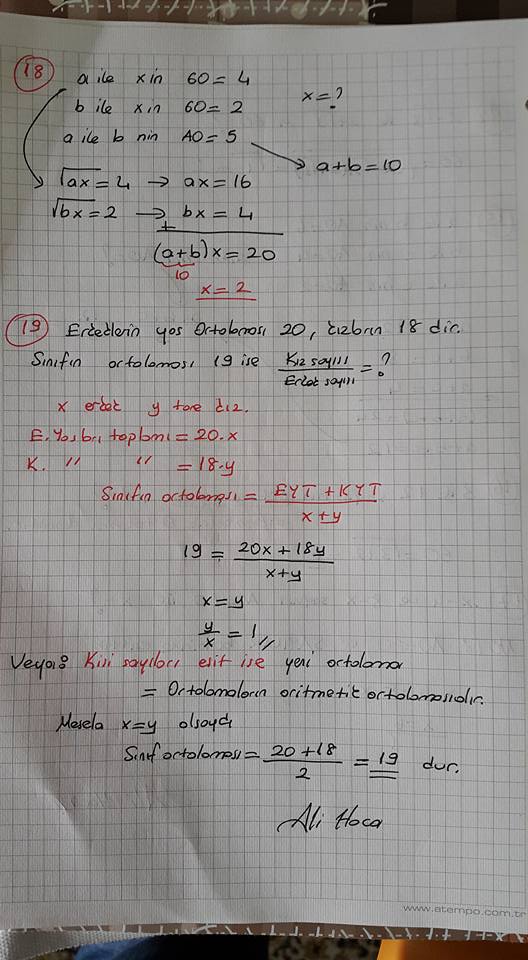 18 a ile x in GO = 4
b ile x in GO = 2 x = ?
a ile b nin AO = 5
a+b = 10
√ax = 4 → ax = 16
√bx = 2 → bx = 4
+
(a+b)x = 20
10
x = 2
19 Erkeklerin yaş Ortalaması 20, kızların 18 dir.
Sınıfın ortalaması 19 ise Kız sayısı / Erkek sayısı = ?
x erkek y tane kız.
E. Yaşları toplamı = 20.x
K. " " = 18.y
Sınıfın ortalaması = EYT + KYT / x+y
19 = 20x + 18y / x+y
x = y
y/x = 1 //
Veya: Kişi sayıları eşit ise yeni ortalama
= Ortalamaların aritmetik ortalamasıdır.
Mesela x=y olsaydı
Sınıf ortalaması = 20 + 18 / 2 = 19 dur.
Ali Hoca
www.atempo.com.tr